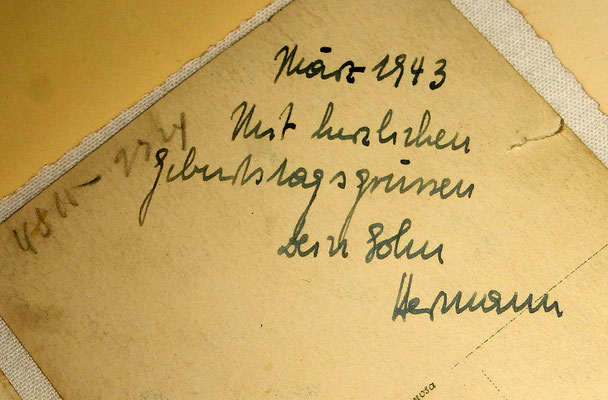 März 1943
Mit herzlichen
Geburtstagsgrüssen
Dein Sohn
Hermann